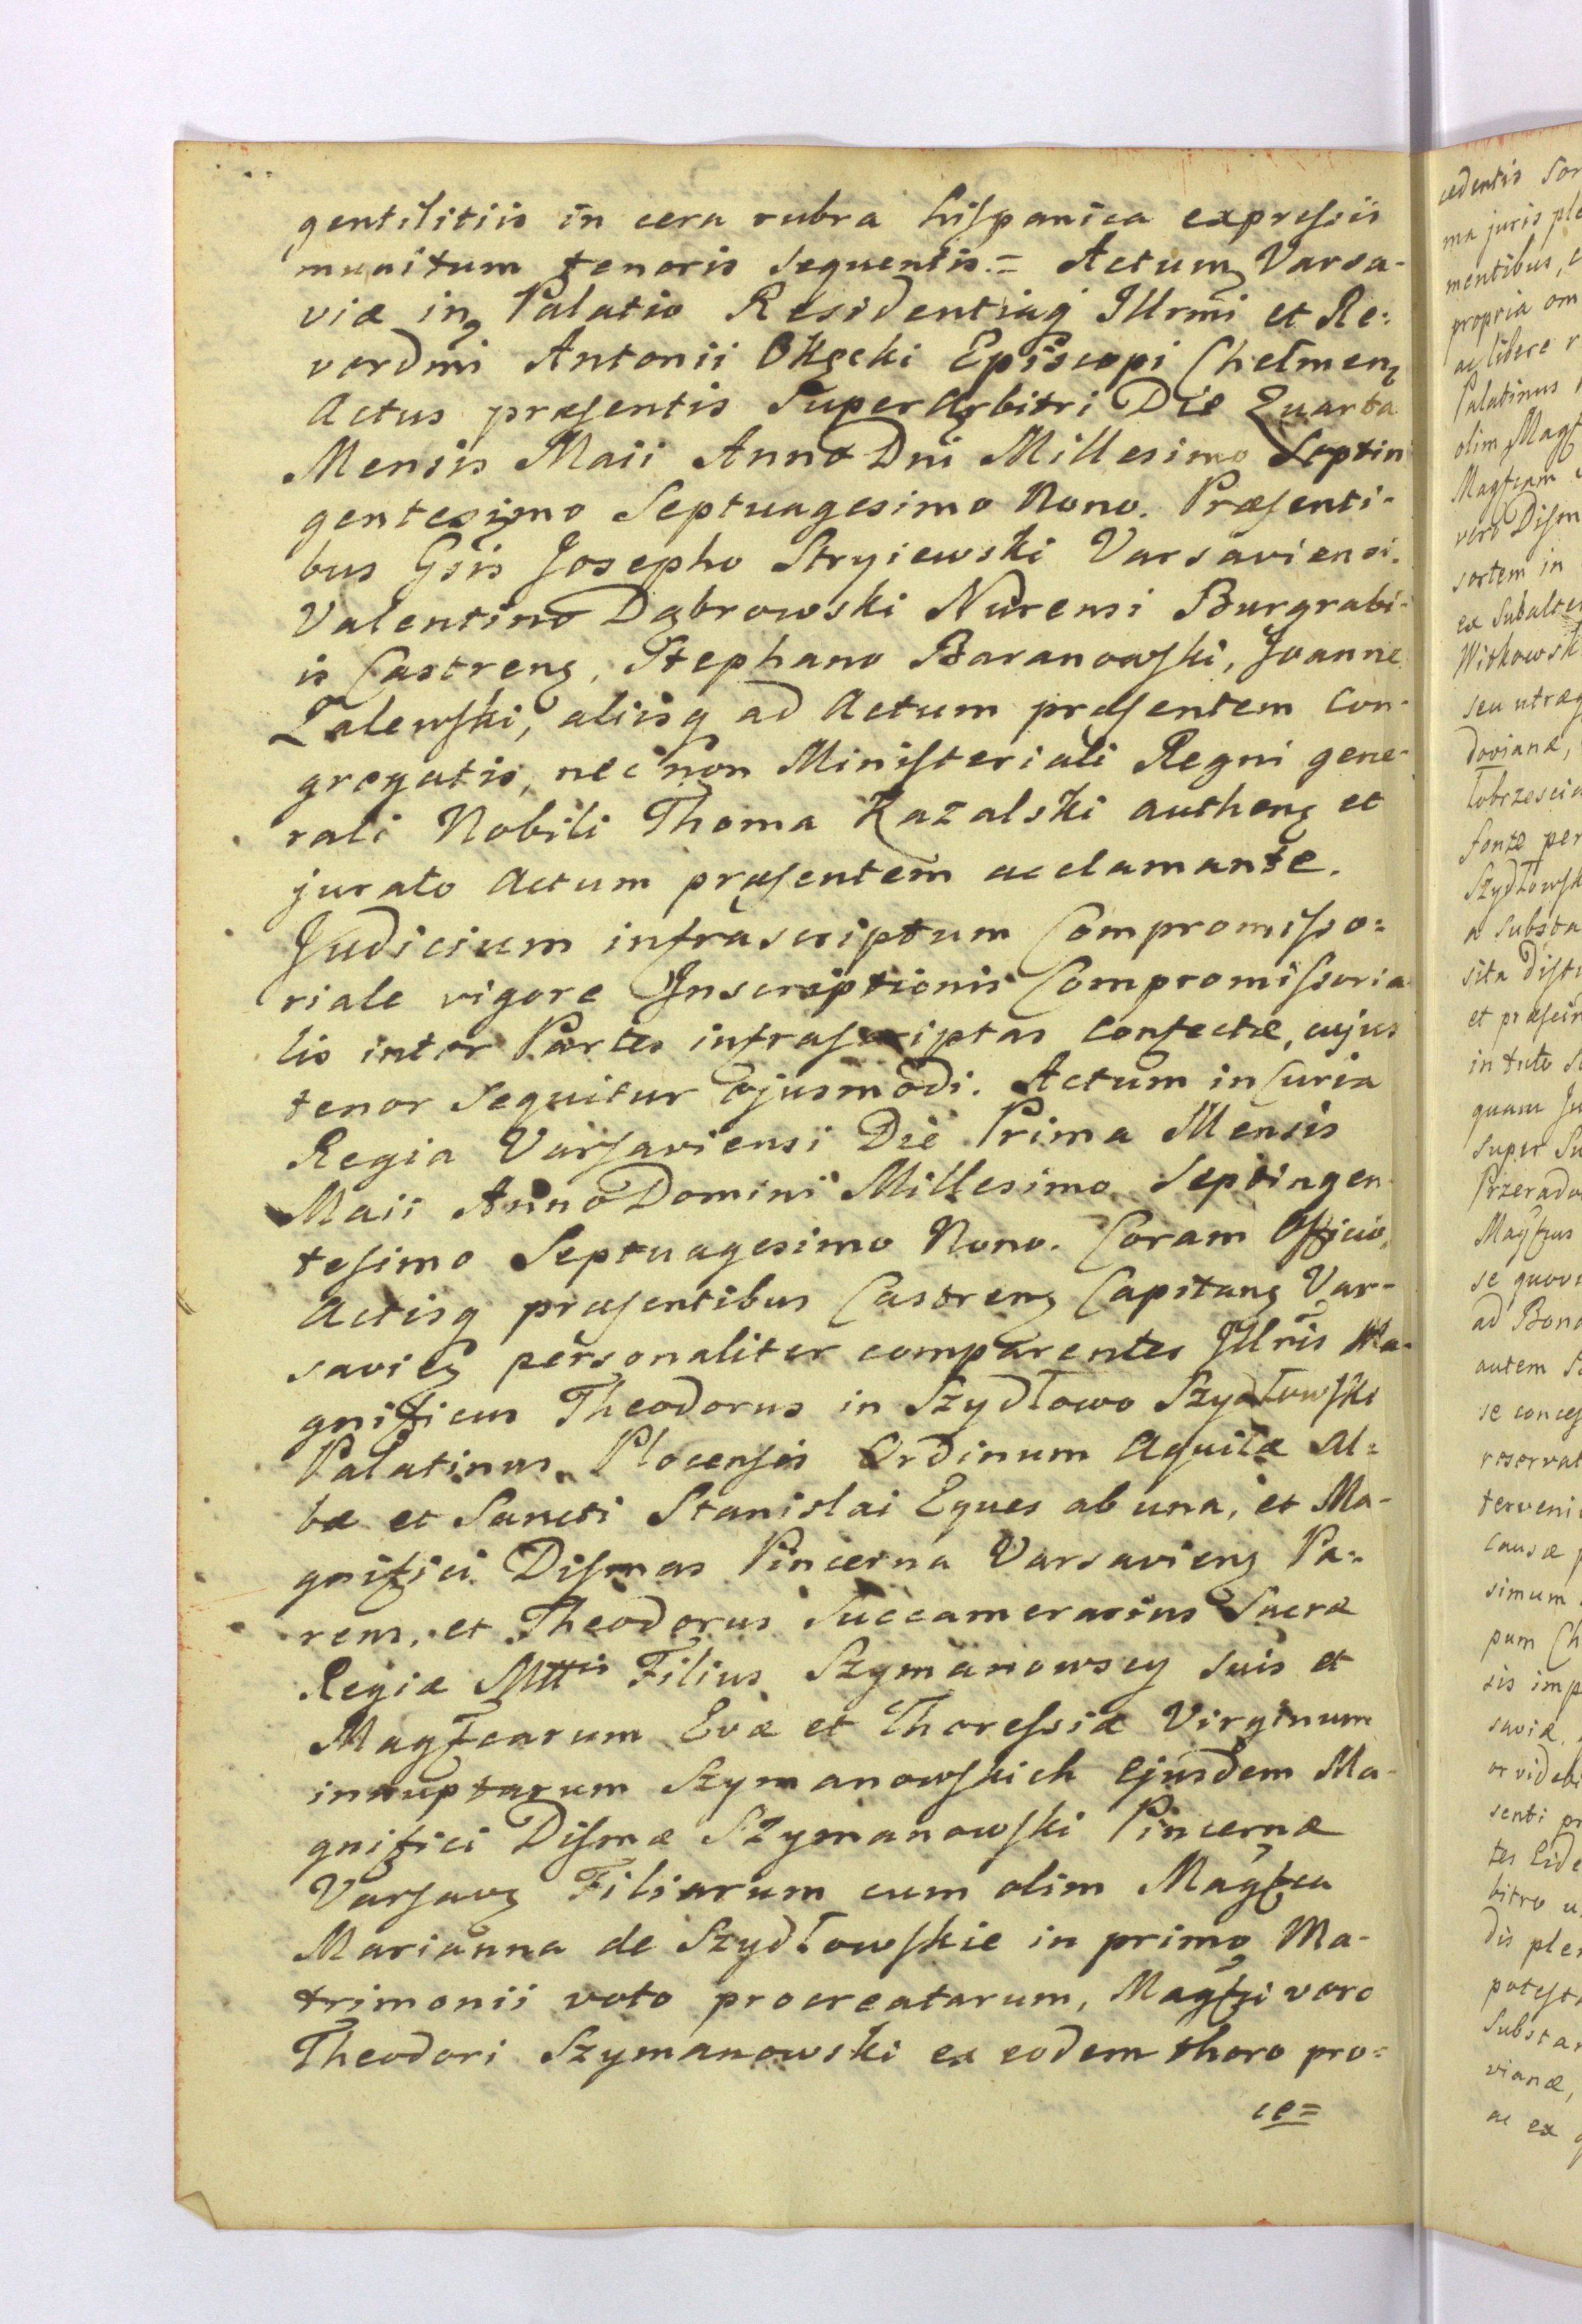 gentilitiis in cera rubra hispanica expressis
munitum tenoris sequentis.= Actum Varsa-
viæ in Palatio Residentiaq Illrmi et Re:
verdmi Antonii Okęcki Episcopi Chelmenq
Actus præsentis SuperArbitri Die Quarta
Mensis Maii Anno Dni Millesimo Septin
gentesimo Septuagesimo Nono. Præsenti-
bus Gsis Josepho Stryiewski Varsaviensi.
Valentino Dąbrowski Nurensi Burgrabi-
is Castrenq, Stephano Baranowski, Joanne
Zalewski, aliisq ad Actum præsentem Con-
gregatis, nec non Ministeriali Regni gene-
rali Nobili Thoma Kazalski authenq et
jurato Actum præsentem acclamante.
Judicium infrascriptum Compromisso=
riale vigore Inscriptionis Compromissoria
lis inter Partes infrascriptas Confectæ, cujus
tenor sequitur ejusmodi. Actum in Curia
Regia Varsaviensi Die Prima Mensis
Maii Anno Domini Millesimo Septingen
tesimo Septuagesimo Nono. Coram Officio,
Actisq præsentibus Castrenq Capitanq Var-
savieq personaliter comparentes Illris Ma-
gnificus Theodorus in Szydłowo Szydłowski
Palatinus Plocensis Ordinum Aquilæ Al=
bæ et Sancti Stanislai Eques ab una, et Ma-
gnifici Dismas Pincerna Varsavienq Pa=
rens, et Theodorus Succamerarius Sacræ
Regiæ Mttis Filius Szymanowscy suis et
Magfcarum Evæ et Theressiæ Virginum
innuptarum Szymanowskich Ejusdem Ma-
gnifici Dismæ Szymanowski Pincernæ
Varsavq Filiarum cum olim Magfca
Marianna de Szydłowskie in primo Ma-
trimonii voto procreatarum, Magfci vero
Theodori Szymanowski ex eodem thoro pro=
ce=
cedentis
ma juris
mentibus,
propria
ac libere
Palatinus
olim
vero
sortem in
ex
seu
doviana,
a
sita
et
in
quam
Super
se
ad
autem
se
causæ
simum
pum
sis
saviæ
senti
tes
dis
ac ex